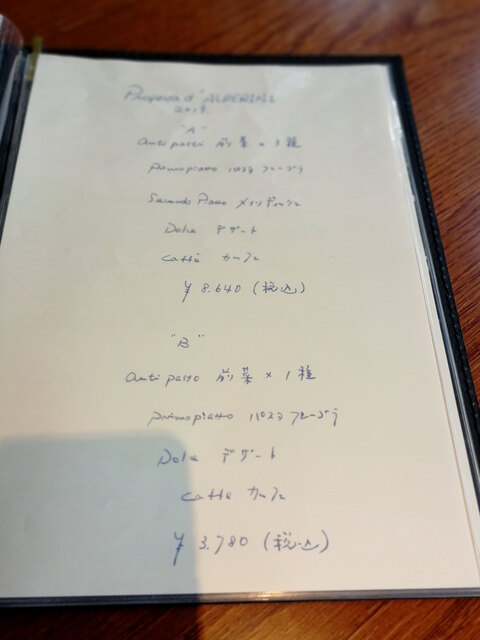 Proposa d' ALBERINI
2019
"A"
Antipasti 前菜×3種
Primopiatto パスタ フレーゴラ
Secondo Piatto メインディッシュ
Dolce デザート
Caffè カッフェ
¥ 8.640 (税込)
"B"
Antipasto 前菜×1種
Primopiatto パスタ フレーゴラ
Dolce デザート
Caffè カッフェ
¥ 3.780 (税込)